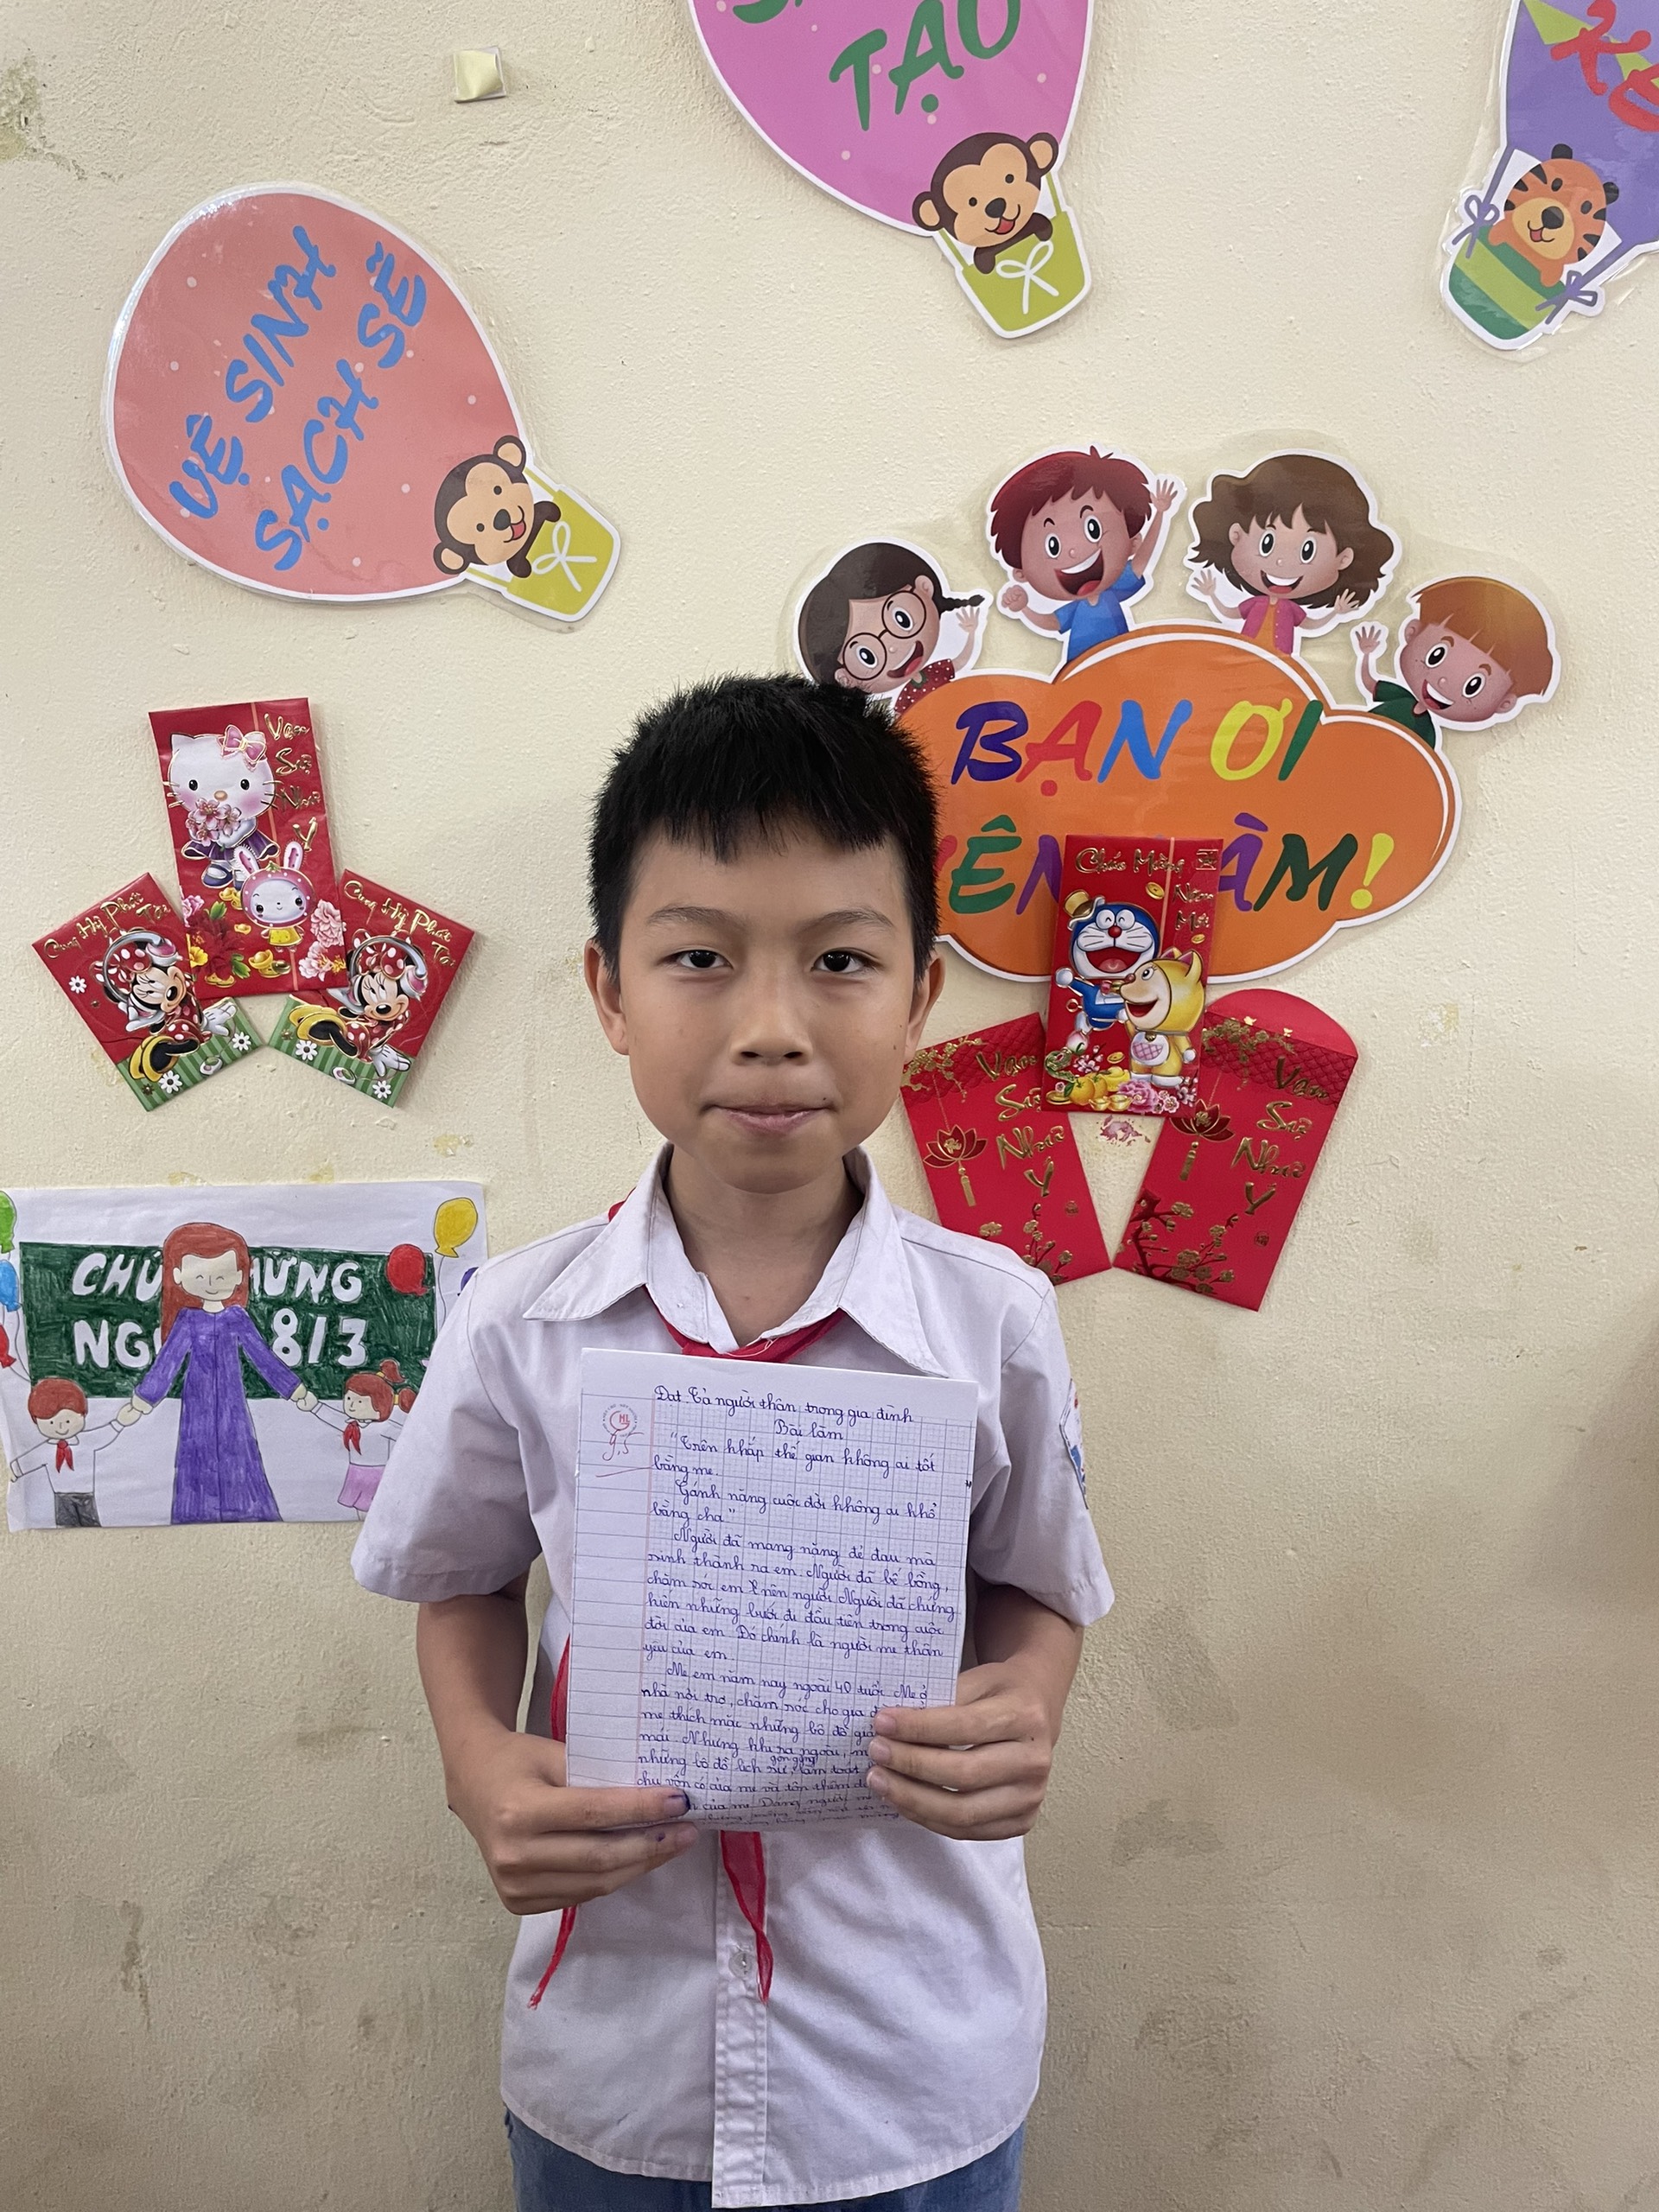 TẠO
VỆ SINH
SẠCH SẼ
BẠN ƠI
ÀM!
Vạn
Sự
Như
Ý
Cung Hỷ Phát Tài
Cung Hỷ Phát Tài
Chúc Mừng
Năm
Mới
Vạn
Sự
Như
Ý
Vạn
Sự
Như
Ý
CHÚ ỪNG
NG 8/3
Đạt. Tả người thân trong gia đình
Bài làm
9,5
"Trên khắp thế gian không ai tốt
bằng mẹ.
Gánh nặng cuộc đời không ai khổ
bằng cha"
Người đã mang nặng đẻ đau mà
sinh thành ra em. Người đã bế bồng,
chăm sóc em nên người. Người đã chứng
kiến những bước đi đầu tiên trong cuộc
đời của em. Đó chính là người mẹ thân
yêu của em.
Mẹ em năm nay ngoài 40 tuổi. Mẹ ở
nhà nội trợ, chăm sóc cho gia
mẹ thích mặc những bộ đồ
mái. Nhưng khi ra ngoài,
những bộ đồ lịch sự, gọn gàng, làm toát
vốn có của mẹ và tôn thêm
của mẹ. Dáng người